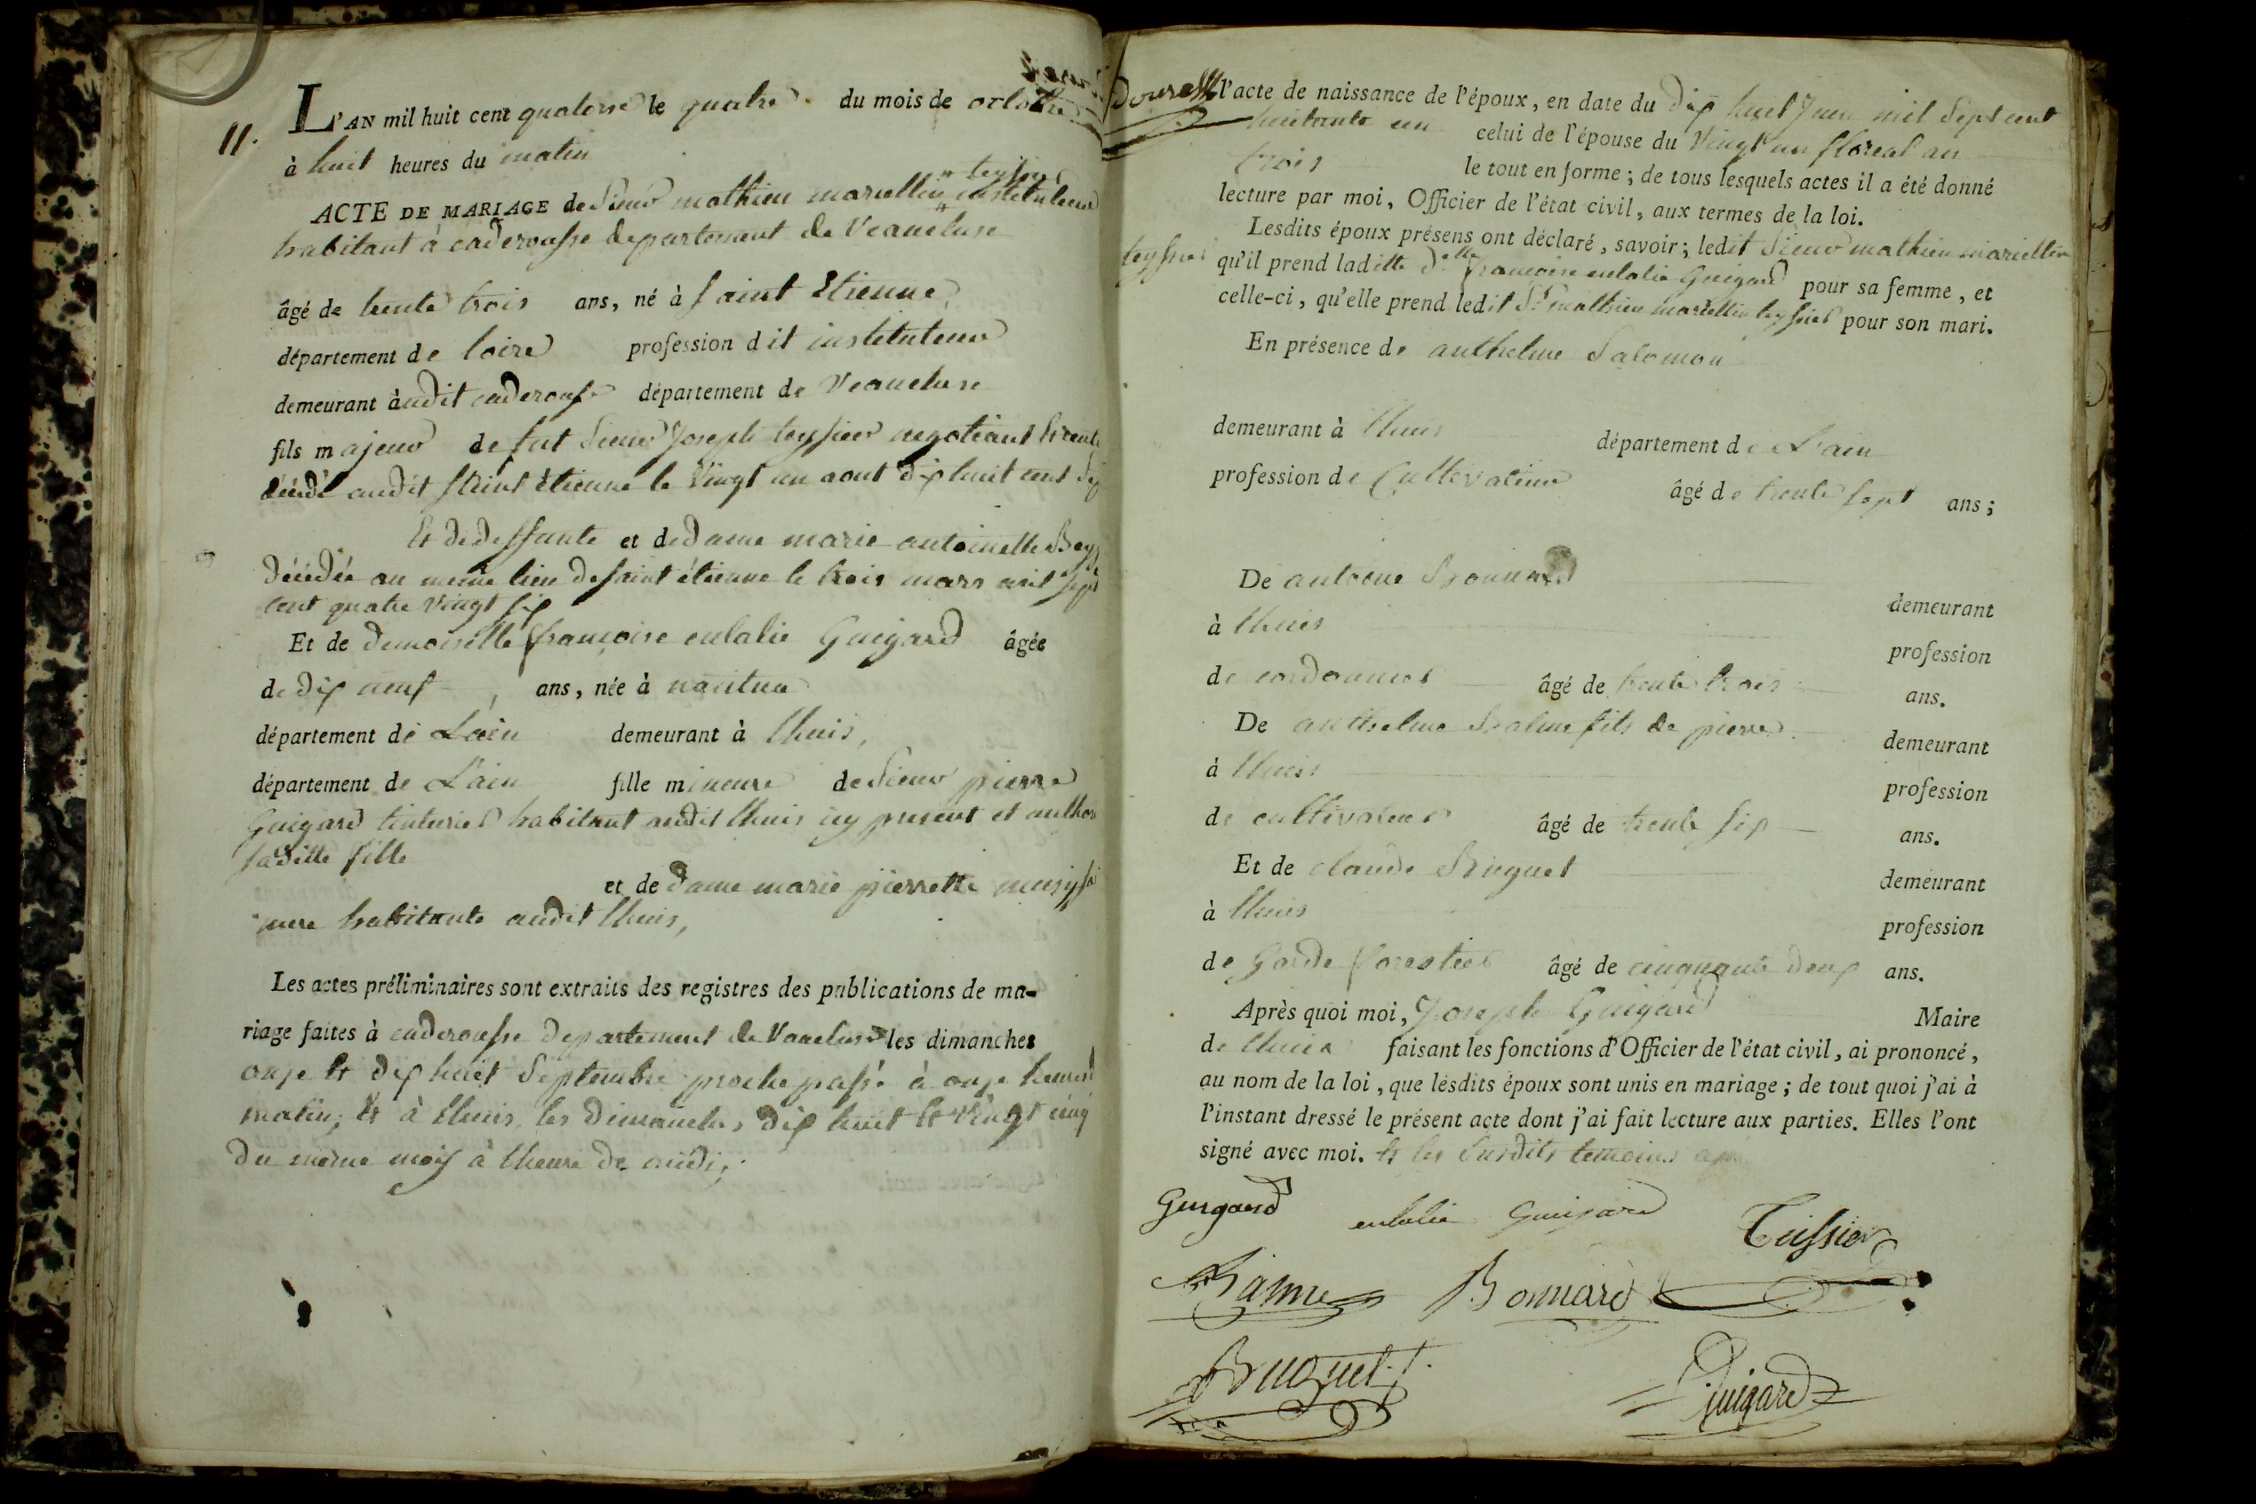 11.
L'AN mil huit cent quatorse le quatre du mois de octobre
à huit heures du matin
teyssier
ACTE DE MARIAGE de Sieur mathieu marcellin instituteur
habitant à caderousse departement de Veaucluse
âgé de trente trois ans, né à saint Etienne
département de loire profession dit instituteur
demeurant audit caderousse département de Veaucluse
fils majeur de fut Sieur Joseph teyssier negotiant
décédé audit saint étienne le vingt un aout dix huit cent
Et de deffunte et de dame marie antoinette
décédée au meme lieu de saint étienne le trois mars mil sept
cent quatre vingt six
Et de demoiselle françoise eulalie Guigard âgée
de dix neuf ans, née à nantua
département de L'ain demeurant à lhuis,
département de L'ain fille mineure de Sieur pierre
Guigard tinturier habitant audit lhuis icy present et
sa ditte fille
et de dame marie pierrette
mere habitante audit lhuis,
Les actes préliminaires sont extraits des registres des publications de ma-
riage faites à caderousse departement de Vaucluse les dimanches
onze et dix huit Septembre proche passé à onze heures
matin, et à lhuis les dimanches dix huit et vingt cinq
du meme mois à lheure de midi,
l'acte de naissance de l'époux, en date du dix huit Juin mil Sept cent
huitante un celui de l'épouse du Vingt un floreal an
trois le tout en forme; de tous lesquels actes il a été donné
lecture par moi, Officier de l'état civil, aux termes de la loi.
Lesdits époux présens ont déclaré, savoir; ledit Sieur mathieu marcellin
teyssier qu'il prend laditte d.elle francoise eulalie Guigard pour sa femme, et
celle-ci, qu'elle prend ledit Sr mathieu marcellin teyssier pour son mari.
En présence de anthelme Salomon
demeurant à lhuis département de L'ain
profession de Cultivateur âgé de trente sept ans;
De antoine Bonnard demeurant
à lhuis profession
de cordonnier âgé de trente trois ans.
De anthelme Balme fils de pierre demeurant
à lhuis profession
de cultivateur âgé de trente six ans.
Et de claude Buguet demeurant
à lhuis profession
de Garde forestier âgé de cinquante deux ans.
Après quoi moi, Joseph Guigard Maire
de lhuis faisant les fonctions d'Officier de l'état civil, ai prononcé,
au nom de la loi, que lesdits époux sont unis en mariage; de tout quoi j'ai à
l'instant dressé le présent acte dont j'ai fait lecture aux parties. Elles l'ont
signé avec moi. et les Susdits temoins
Guigard eulalie Guigard Teissier
Balme Bonnard
Buguet Guigard